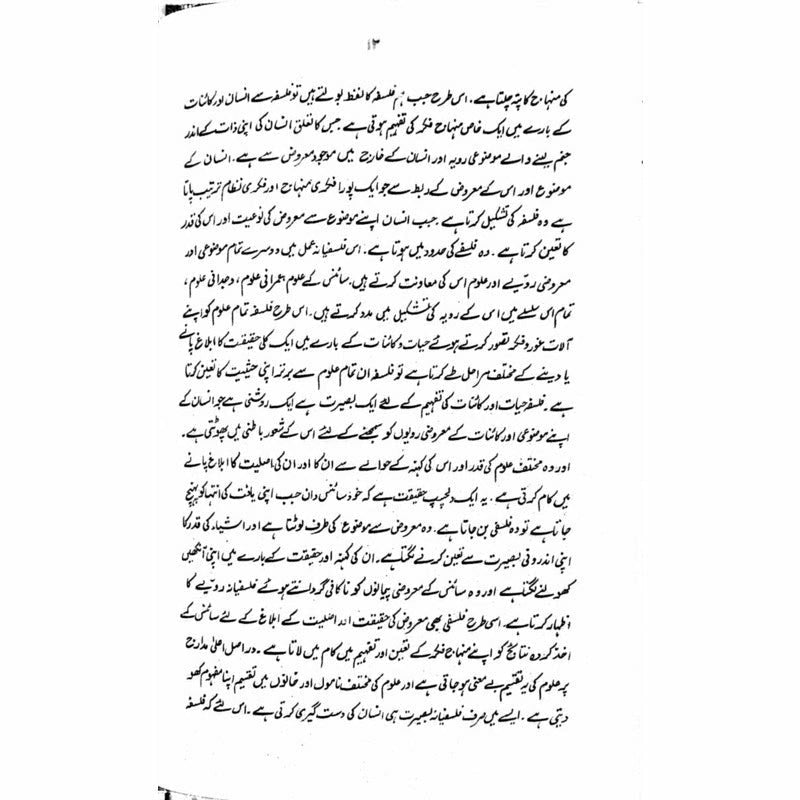 ۱۲
کی منہاج کا پتہ چلتا ہے۔ اس طرح جب ہم فلسفہ کا لفظ بولتے ہیں تو فلسفہ سے انسان اور کائنات
کے بارے میں ایک خاص منہاج فکر کی تفہیم ہوتی ہے جس کا تعلق انسان کی اپنی ذات کے اندر
جنم لینے والے موضوعی رویہ اور انسان کے خارج میں موجود معروض سے ہے۔ انسان کے
موضوع اور اس کے معروض کے ربط سے جو ایک پورا فکری منہاج اور فکری نظام ترتیب پاتا
ہے وہ فلسفہ کی تشکیل کرتا ہے۔ جب انسان اپنے موضوع سے معروض کی نوعیت اور اس کی قدر
کا تعین کرتا ہے۔ وہ فلسفے کی حدود میں ہوتا ہے۔ اس فلسفیانہ عمل میں دوسرے تمام موضوعی اور
معروضی رویے اور علوم اس کی معاونت کرتے ہیں۔ سائنس کے علوم، عمرانی علوم، وجدانی علوم،
تمام اس سلسلے میں اس کے رویہ کی تشکیل میں مدد کرتے ہیں۔ اس طرح فلسفہ تمام علوم کو اپنے
آلات غور و فکر تصور کرتے ہوئے حیات و کائنات کے بارے میں ایک کلی حقیقت کا ابلاغ پانے
یا دینے کے مختلف مراحل طے کرتا ہے تو فلسفہ ان تمام علوم سے برتر اپنی حیثیت کا تعین کرتا
ہے۔ فلسفہ حیات اور کائنات کی تفہیم کے لئے ایک بصیرت ہے ایک روشنی ہے جو انسان کے
اپنے موضوعی اور کائنات کے معروضی رویوں کو سمجھنے کے لئے اس کے شعور باطنی میں پھوٹتی ہے۔
اور وہ مختلف علوم کی قدر اور اس کی کنہہ کے حوالے سے ان کا اور ان کی اصلیت کا ابلاغ پانے
میں کام کرتی ہے۔ یہ ایک دلچسپ حقیقت ہے کہ خود سائنس دان جب اپنی یافت کی انتہا کو پہنچ
جاتا ہے تو وہ فلسفی بن جاتا ہے۔ وہ معروض سے موضوع کی طرف لوٹتا ہے اور اشیاء کی قدر کا
اپنی اندرونی بصیرت سے تعین کرنے لگتا ہے۔ ان کی کنہہ اور حقیقت کے بارے میں اپنی آنکھیں
کھولنے لگتا ہے اور وہ سائنس کے معروضی پیمانوں کو ناکافی گردانتے ہوئے فلسفیانہ رویے کا
اظہار کرتا ہے۔ اسی طرح فلسفی بھی معروض کی حقیقت اور اصلیت کے ابلاغ کے لئے سائنس کے
اخذ کردہ نتائج کو اپنے منہاج فکر کے تعین اور تفہیم میں کام میں لاتا ہے۔ دراصل اعلیٰ مدارج
پر علوم کی یہ تقسیم بے معنی ہو جاتی ہے اور علوم کی مختلف ناموں اور خانوں میں تقسیم اپنا مفہوم کھو
دیتی ہے۔ ایسے میں صرف فلسفیانہ بصیرت ہی انسان کی دست گیری کرتی ہے۔ اس لئے کہ فلسفہ